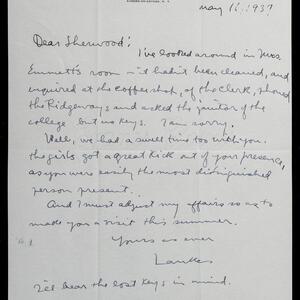 May 16, 1937
Dear Sherwood:
I've looked around in Mrs
Emmett's room – it hadn't been cleaned, and
inquired at the coffee shop, of the clerk, should
the Ridgeways and asked the janitor of the
college but no keys. I am sorry.
Well, we had a swell time too with you.
the girls got a great kick out of your presence,
as you were easily the most distinguished
person present.
And I must adjust my affairs so as to
make you a visit this summer.
Yours as ever
Lankes
I'll bear the lost keys in mind.